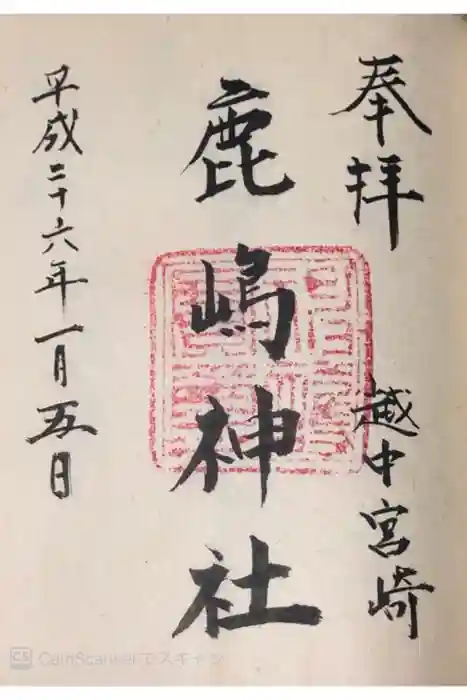 奉拝
越中宮崎
鹿嶋神社
平成二十六年一月五日
CS CamScannerでスキャン